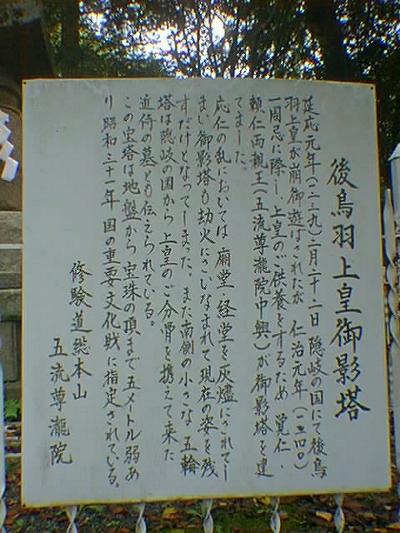 後鳥羽上皇御影塔
延応元年(一二三九)二月二十二日 隠岐の国にて後鳥
羽上皇が崩御遊ばされたが 仁治元年(一二四〇)
一周忌に際し 上皇のご供養をするため 覚仁・
頼仁両親王(五流尊瀧院中興)が御影塔を建
てました。
応仁の乱においては 廟堂・経堂を灰燼にされてし
まい御影塔も劫火にさいなまれて現在の姿を残
すだけとなってしまった。また南側の小さな五輪
塔は隠岐の国から上皇のご分骨を携えて来た
近侍の墓とも伝えられている。
この宝塔は地盤から宝珠の頂まで五メートル弱あ
り昭和三十一年 国の重要文化財に指定されている。
修験道総本山
五流尊瀧院